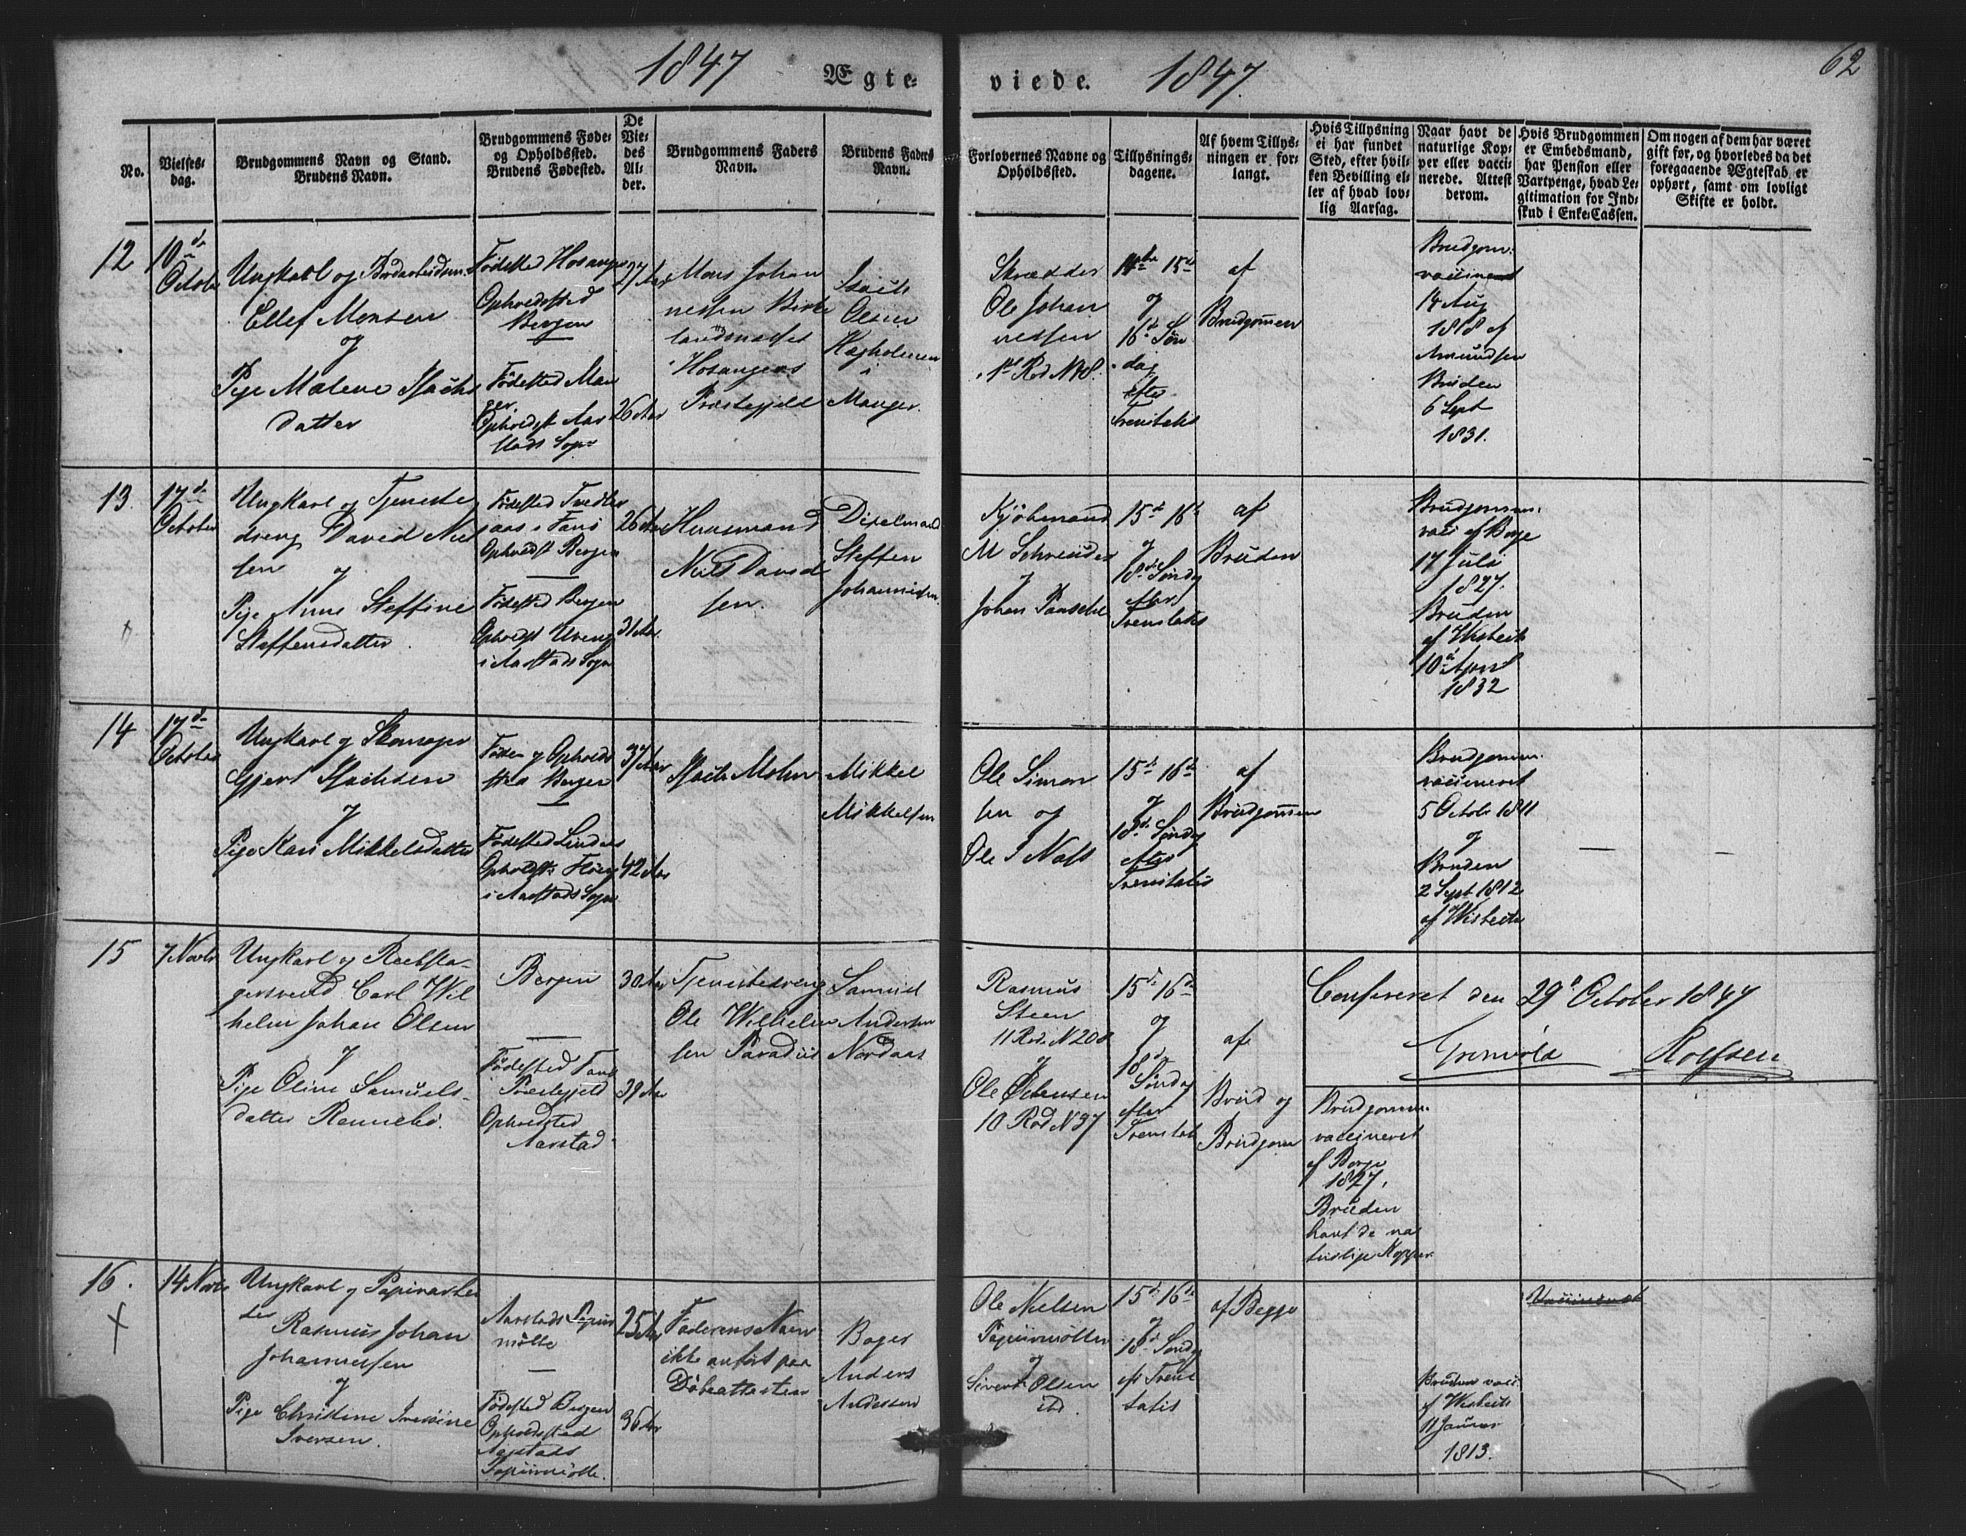 1847 Ægte-
viede. 1847.
62
No.
Vielses-
dag.
Brudgommens Navn og Stand.
Brudens Navn.
Brudgommens Føde-
og Opholdssted.
Brudens Fødested.
De
Vie-
des
Al-
der.
Brudgommens Faders
Navn.
Brudens Faders
Navn.
Forlovernes Navne og
Opholdssted.
Tillysnings-
dagene.
Af hvem Tillys-
ningen er for-
langt.
Hvis Tillysning
ei har fundet
Sted, efter hvil-
ken Bevilling el-
ler af hvad lov-
lig Aarsag.
Naar havt de
naturlige Kop-
per eller vacci-
nerede. Attest
derom.
Hvis Brudgommen
er Embedsmand,
har Pension eller
Vartpenge, hvad Le-
gitimation for Ind-
skud i Enke-Cassen.
Om nogen af dem har været
gift før, og hvorledes da det
foregaaende Ægteskab er
ophørt, samt om lovligt
Skifte er holdt.
12
10de
October
Ungkarl og
Ellef Monsen
og
Pige Malene Isachs
datter
Fødested Hosanger
Opholdssted
Bergen
Fødested Man
ger
Opholdst Aar
stads Sogn
27 Aar
26 Aar
Mons Johan
nessen Birke
land
Hosangers
Præstegjeld
Isach
Olsen
Hægholmen
i
Manger.
Skrædder
Ole Johan
nessen
15de
og
16de Søn
dag
efter
Trenitatis
af
Brudgommen
Brudgom.
vaccineret
14 Aug
1818 af
Amundsen
Bruden
6 Sept
1831.
13.
17de
October
Ungkarl og Tjeneste
dreng David Niel
sen og
Pige Anne Steffine
Steffensdatter
Fødested
i Fane
Opholdst Bergen
Fødested Bergen
Opholdst
i Aarstads Sogn
26 Aar
31 Aar
Huusmand
Niels David
sen.
Steffen
Johannessen.
Kjøbmand
M Schreuder
og
Johan
15de 16de
og
18de Søndag
efter
Trenitatis
af
Bruden
Brudgommen
vacc af Børge
17 Juli
1827.
Bruden
af Wisbech
10de April
1832
14
17de
October
Ungkarl og Skomager
Gjert Isachsen
og
Pige Kari Mikkelsdatter
Føde- og Opholds
sted Bergen
Fødested Lindaas
Opholdst
i Aarstads Sogn
37 Aar
42 Aar
Isach Mohn
Mikkel
Mikkelsen
Ole Simon
sen og
Ole
15de 16de
og
18de Søndag
efter
Trenitatis
af
Brudgommen
Brudgommen
vaccineret
5 Octob 1811
og
Bruden
2 Sept 1812
af Wisbech
15
7 Novbr
Ungkarl og Reebsla-
gersvend Carl Wil
helm Johan Olsen
og
Pige Oline Samuels-
datter
Bergen
Fødested Fane
Præstegjeld
Opholdsted
Aarstad
30 Aar
39 Aar
Tjenestedreng
Ole Wilhelm
sen Paradiis
Samuel
Andersen
Nordaas
Rasmus
Steen
11 Rod. N 208
og
Ole
10 Rod N 37
15de 16de
og
18de
Søndag
efter
Trenitat
af
Brud og
Brudgom
Confereret den 29de October 1847
Rolfsen
Brudgommen
vaccineret
af Børge
1827,
Bruden
havt de na
turlige Kopper
16.
14 Novbr
Ungkarl og Papirarbei
der
Rasmus Johan
Johannessen
og
Pige Christine
Iversen.
Aarstads Papir
mølle
Fødested Bergen
Opholdssted
Aarstads
Papiirmølle.
25 Aar
36 Aar
Faderens Navn
ikke anført paa
Døbeattesten
Bager
Anders
Andersen
Ole Nielsen
Papiirmøllen
og
Sivert Olsen
ibd.
15de 16de
og
18de Søndag
eft Treni
tatis
af Begge
Vaccineret
Bruden vacc.
af Wisbech
11 Januar
1813.